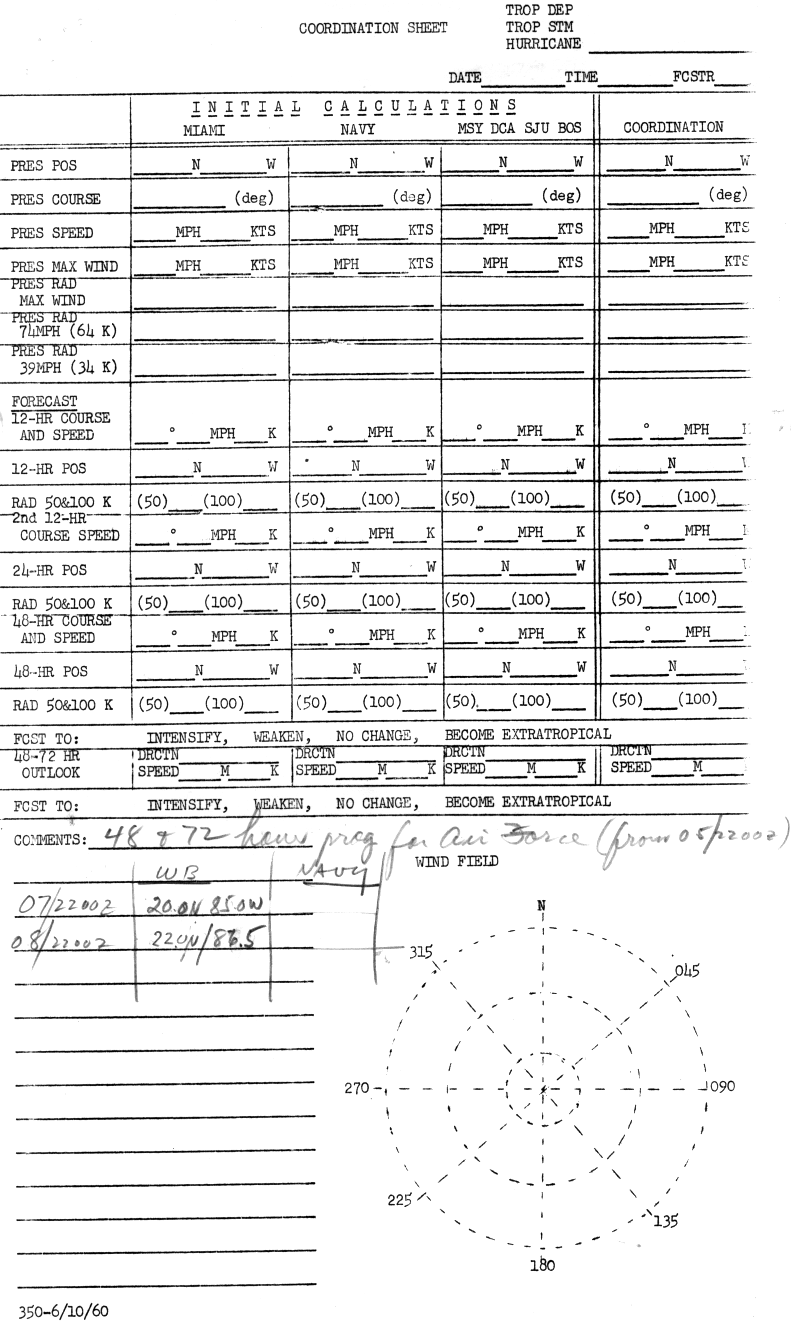 TROP DEP
COORDINATION SHEET TROP STM
HURRICANE
DATE TIME FCSTR
INITIAL CALCULATIONS
MIAMI NAVY MSY DCA SJU BOS COORDINATION
PRES POS N W N W N W N W
PRES COURSE (deg) (deg) (deg) (deg)
PRES SPEED MPH KTS MPH KTS MPH KTS MPH KTS
PRES MAX WIND MPH KTS MPH KTS MPH KTS MPH KTS
PRES RAD
MAX WIND
PRES RAD
74MPH (64 K)
PRES RAD
39MPH (34 K)
FORECAST
12-HR COURSE
AND SPEED ° MPH K ° MPH K ° MPH K ° MPH
12-HR POS N W N W N W N
RAD 50&100 K (50) (100) (50) (100) (50) (100) (50) (100)
2nd 12-HR
COURSE SPEED ° MPH K ° MPH K ° MPH K ° MPH
24-HR POS N W N W N W N
RAD 50&100 K (50) (100) (50) (100) (50) (100) (50) (100)
48-HR COURSE
AND SPEED ° MPH K ° MPH K ° MPH K ° MPH
48-HR POS N W N W N W N
RAD 50&100 K (50) (100) (50) (100) (50) (100) (50) (100)
FCST TO: INTENSIFY, WEAKEN, NO CHANGE, BECOME EXTRATROPICAL
48-72 HR DRCTN DRCTN DRCTN DRCTN
OUTLOOK SPEED M K SPEED M K SPEED M K SPEED M
FCST TO: INTENSIFY, WEAKEN, NO CHANGE, BECOME EXTRATROPICAL
COMMENTS: 48 & 72 hour prog for Air Force (from 05/2200Z)
WB NAVY WIND FIELD
07/2200Z 20.0N 85.0W
08/2200Z 22.0N/86.5
N
315 045
270 090
225 135
180
350-6/10/60